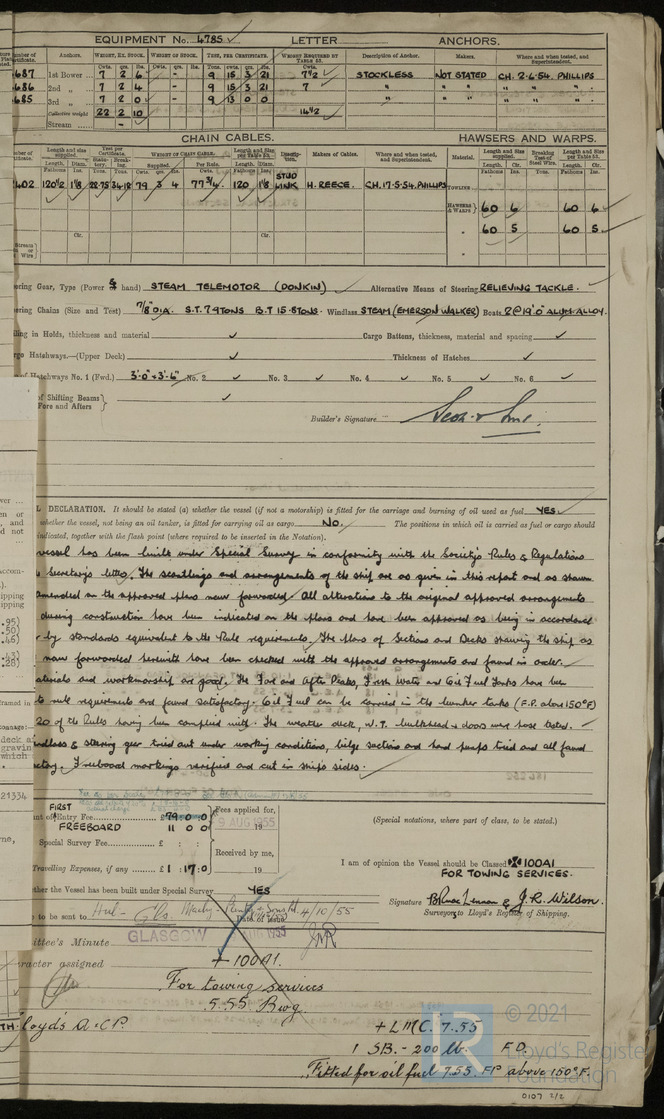 EQUIPMENT No. 4785 LETTER ANCHORS.
Anchors. WEIGHT, EX. STOCK. WEIGHT OF STOCK. TEST, PER CERTIFICATE. WEIGHT REQUIRED BY TABLE 53. Description of Anchor. Makers. Where and when tested, and Superintendent.
Cwts. qrs. lbs. Cwts. qrs. lbs. Tons. cwts. qrs. lbs. Cwts.
687 1st Bower 7 2 6 - 9 15 3 21 7½ STOCKLESS NOT STATED CH. 2.6.54. PHILLIPS
686 2nd „ 7 2 4 - 9 15 3 21 7 " " " " "
685 3rd „ 7 2 0 - 9 13 0 0 " " " " "
Collective weight 22 2 10 14½
Stream -
CHAIN CABLES. HAWSERS AND WARPS.
Length and size supplied. Test per Certificate. WEIGHT OF CHAIN CABLE. Length and Size per Table 53. Description. Makers of Cables. Where and when tested, and Superintendent. Material. Length and Size supplied. Breaking Test of Steel Wire. Length and Size per Table 53.
Length. Diam. Statutory. Breaking. Supplied. Per Rule. Length. Diam.
Fathoms Ins. Tons. Tons. Cwts. qrs. lbs. Cwts. Fathoms Ins. Fathoms Ins. Tons. Fathoms Ins.
402 120½ 1⅛ 22.75 34.18 79 3 4 77¾ 120 1⅛ STUD LINK H. REECE. CH. 17.5.54. PHILLIPS TOWLINE
HAWSERS & WARPS 60 6 60 6
" 60 5 60 5
Cir. Cir.
ering Gear, Type (Power & hand) STEAM TELEMOTOR (DONKIN) Alternative Means of Steering RELIEVING TACKLE.
ering Chains (Size and Test) 7/8" DIA. S.T. 7.9 TONS B.T 15.8 TONS. Windlass STEAM (EMERSON WALKER) Boats 2 @ 19'.0" ALUM. ALLOY.
ling in Holds, thickness and material Cargo Battens, thickness, material and spacing
rgo Hatchways.—(Upper Deck) Thickness of Hatches
of Hatchways No. 1 (Fwd.) 3'-0" × 3'-6" No. 2 No. 3 No. 4 No. 5 No. 6
of Shifting Beams
Fore and Afters
Builder's Signature
L DECLARATION. It should be stated (a) whether the vessel (if not a motorship) is fitted for the carriage and burning of oil used as fuel YES.
whether the vessel, not being an oil tanker, is fitted for carrying oil as cargo NO. The positions in which oil is carried as fuel or cargo should
indicated, together with the flash point (where required to be inserted in the Notation).
vessel has been built under Special Survey in conformity with the Society's Rules & Regulations
Secretary's letters. The scantlings and arrangements of the ship are as given in this report and as shown
amended on the approved plans now forwarded. All alterations to the original approved arrangements
during construction have been indicated on the plans and have been approved as being in accordance
by standards equivalent to the Rule requirements. The plans of Sections and Decks shewing the ship as
now forwarded herewith have been checked with the approved arrangements and found in order.
aterials and workmanship are good. The Fore and After Peaks, Fresh Water and Oil Fuel Tanks have been
to rule requirements and found satisfactory. Oil Fuel can be carried in the bunker tanks (F.P. above 150°F)
20 of the Rules having been complied with. The weather deck, W.T. bulkheads & doors were hose tested.
indlass & steering gear tried out under working conditions, bilge suctions and hand pumps tried and all found
ctory. Freeboard markings verified and cut in ship's sides.
FIRST
nt of Entry Fee £ 79 0 0 Fees applied for,
FREEBOARD 11 0 0 9 AUG 1955 19
Special Survey Fee £ : : Received by me,
Travelling Expenses, if any £ 1 : 17 : 0 19
(Special notations, where part of class, to be stated.)
I am of opinion the Vessel should be Classed ✠ 100A1
FOR TOWING SERVICES.
ther the Vessel has been built under Special Survey YES
Signature J.R. Wilson.
Surveyors to Lloyd's Register of Shipping.
to be sent to Hul - Gls. 4/10/55
Date of issue
ittee's Minute GLASGOW 1955
racter assigned + 100A1.
For towing services
5.55 Bwg.
Lloyd's A & CP. + LMC. 7.55
1 SB. - 200 lb. F.D.
Fitted for oil fuel 7.55. FP above 150°F.
0107 2/2
© 2021
Lloyd's Register
Foundation
21334